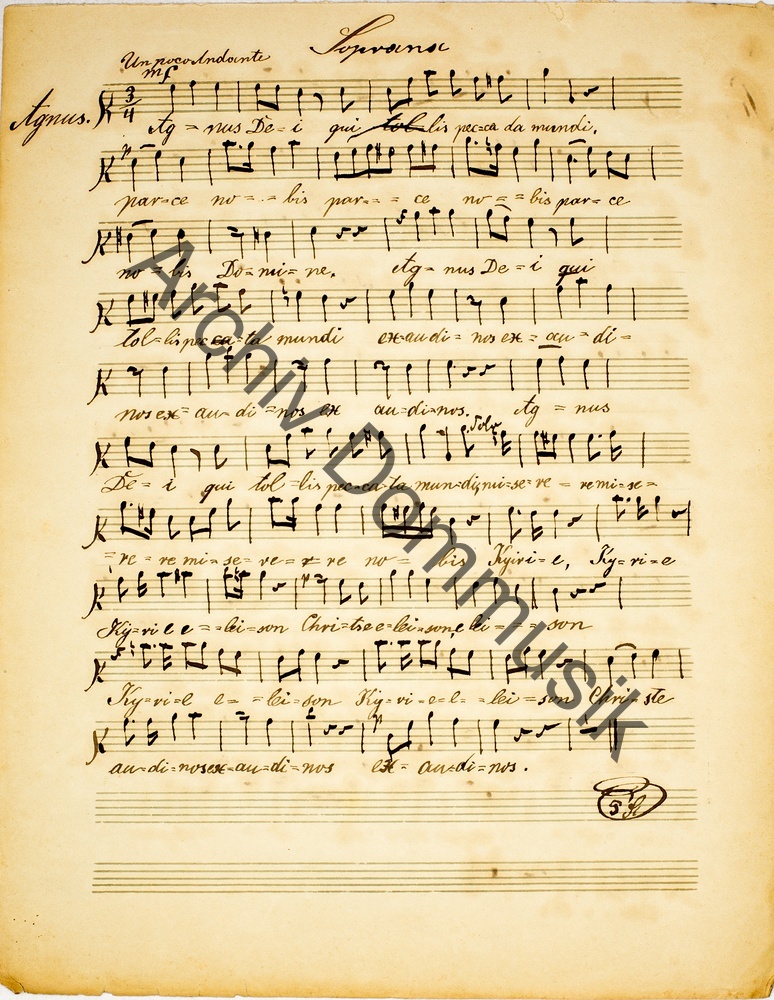 Soprano
Un poco Andante
mf
Agnus.
3/4
Ag = nus De = i qui tol=lis pec=ca da mundi.
p
par=ce no = = bis par = = ce no = = bis par = ce
no = bis Do = mi = ne. Ag = nus De = i qui
tol=lis pec=ca=ta mundi ex=au di = nos ex = au = di =
nos ex = au = di = nos ex au=di=nos. Ag = nus
Solo
De = i qui tol =lis pec=ca=ta mun=di, mi=se=re = re mi=se =
=re = re mi = se= re = re no = bis Ky=ri=e, Ky=ri=e
Ky=ri e e = =lei=son Chri=ste e=lei=son, e lei = = = son
Ky=ri=e e = =lei=son Ky=ri=e=e= =lei=son Chri=ste
p
au=di=nos ex=au=di=nos ex= au=di=nos.
Archiv Dommusik